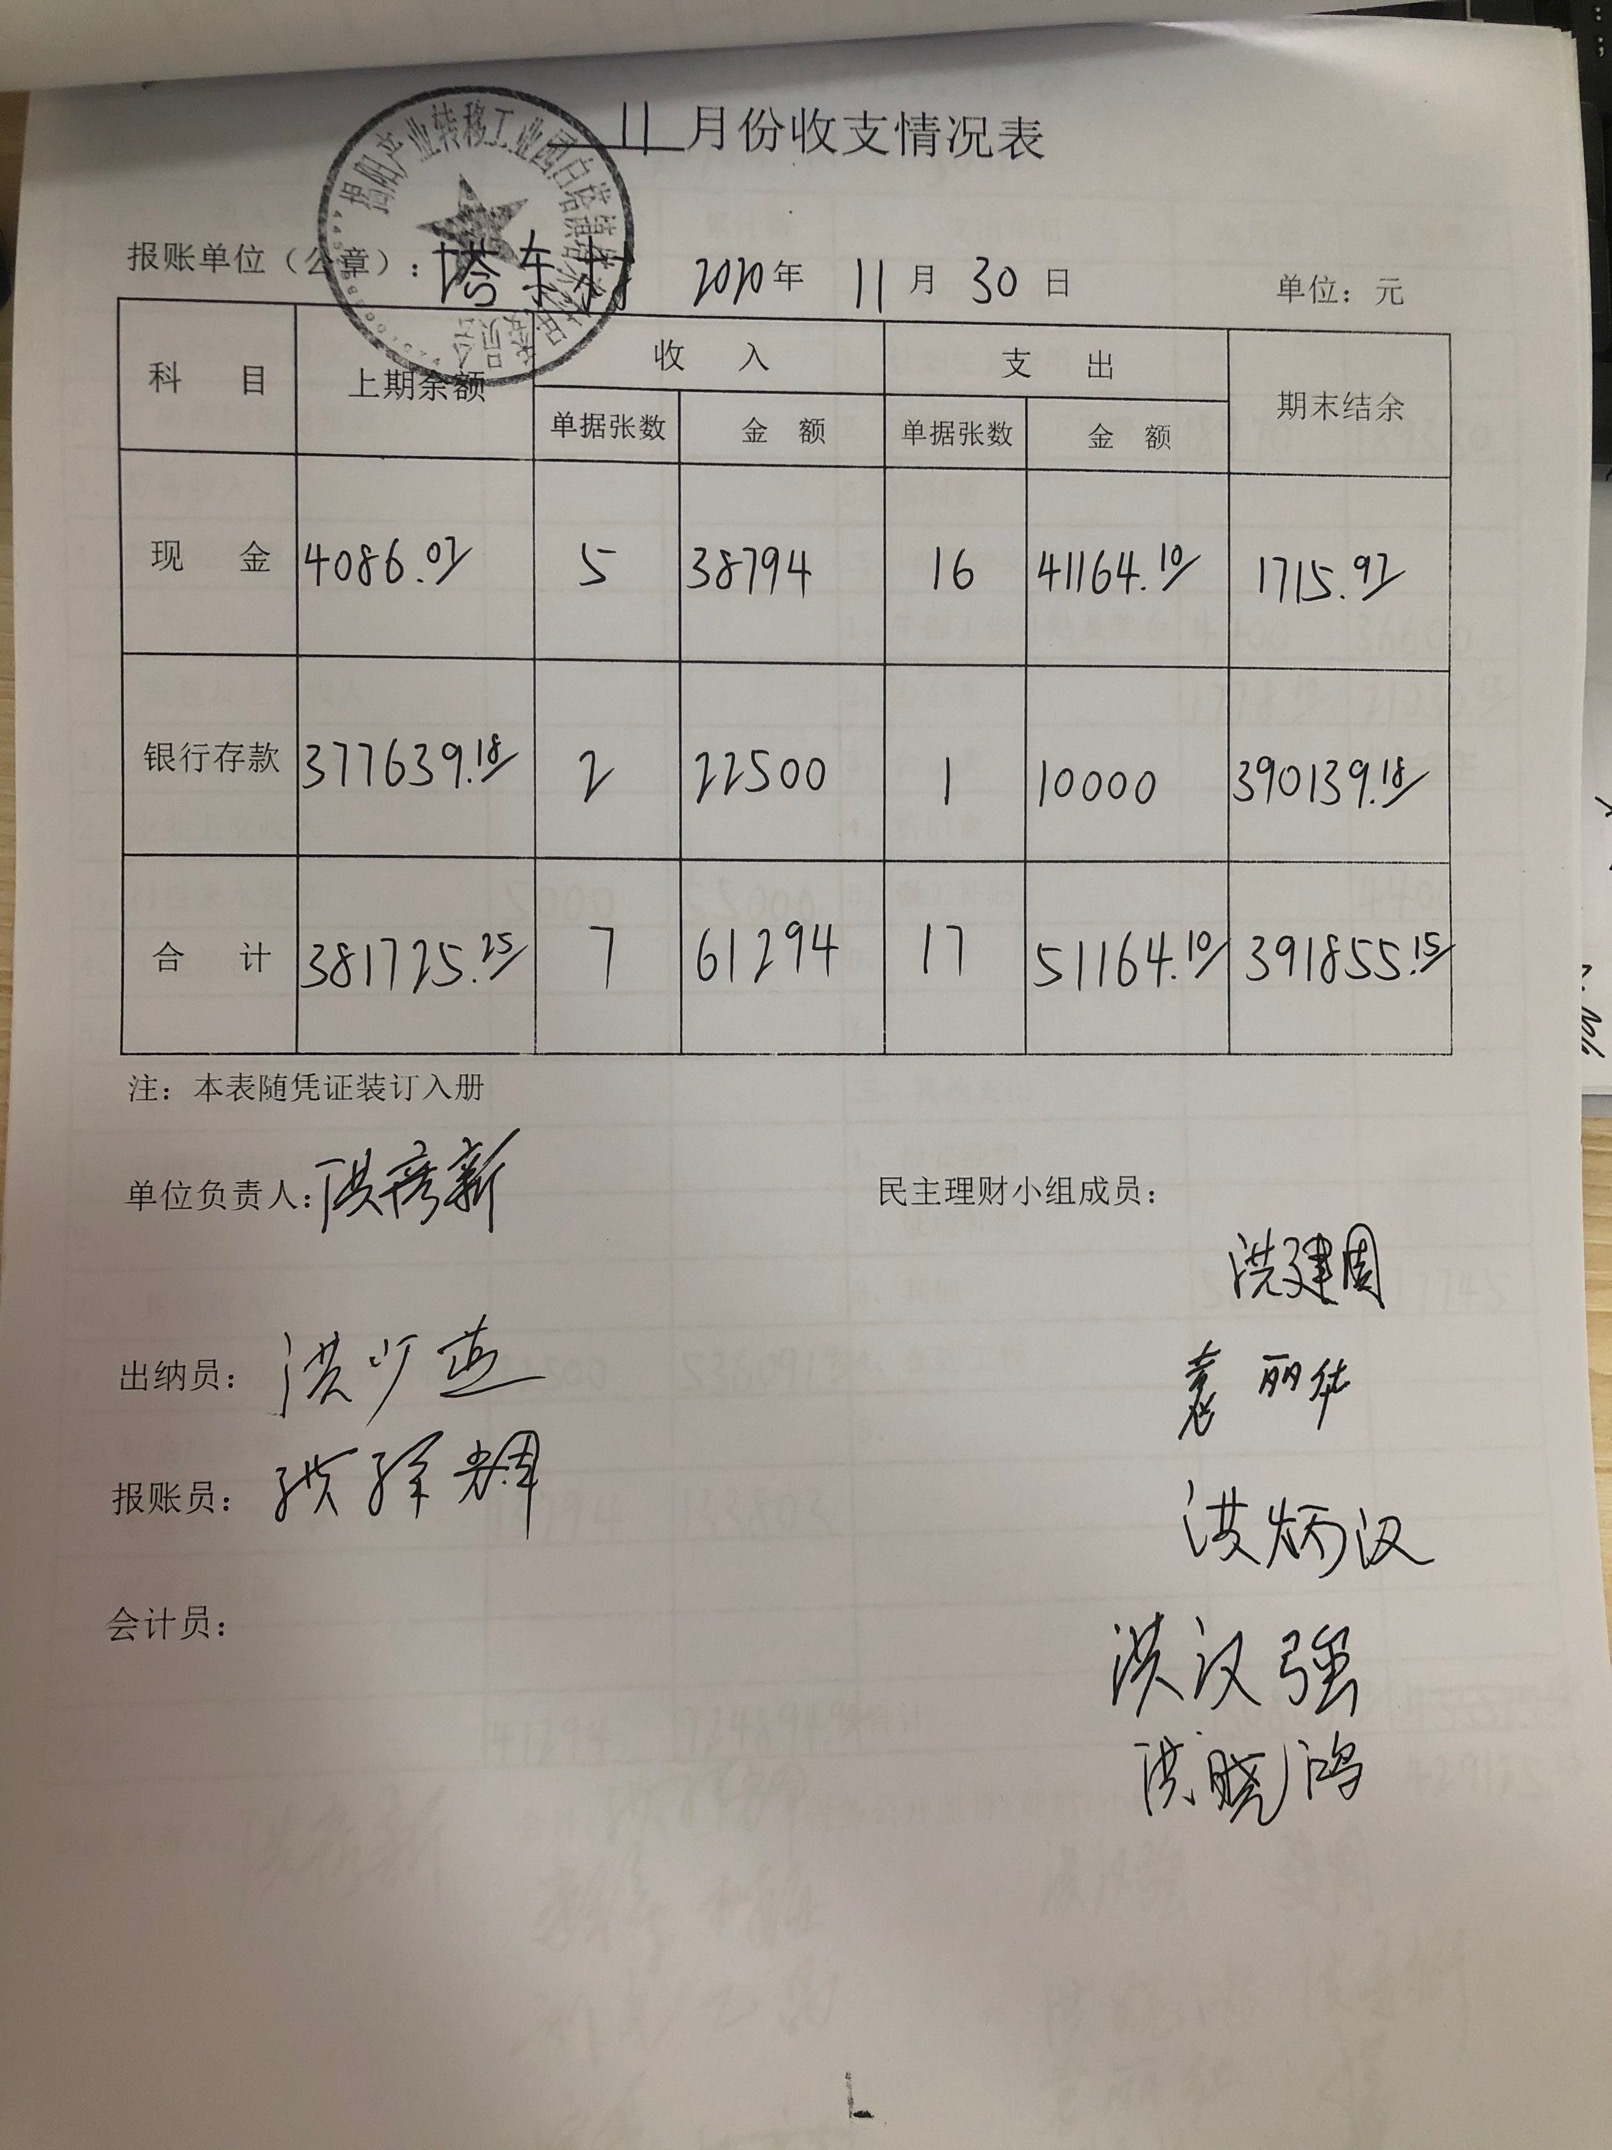 11月份收支情况表
报账单位（公章）：塔东村 2020年 11月 30日 单位：元
揭阳产业转移工业园白塔镇塔东村村民委员会
科 目 上期余额 收 入 支 出 期末结余
单据张数 金 额 单据张数 金 额
现 金 4086.07 5 38794 16 41164.10 1715.97
银行存款 377639.18 2 22500 1 10000 390139.18
合 计 381725.25 7 61294 17 51164.10 391855.15
注：本表随凭证装订入册
单位负责人：洪彦新 民主理财小组成员：
洪建周
出纳员：洪少燕 袁丽华
报账员：洪 辉 洪炳汉
会计员：
洪汉强
洪晓鸿